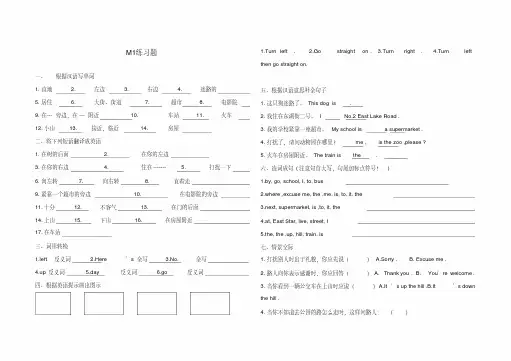 M1练习题
一、 根据汉语写单词
1. 直地 2. 左边 3. 右边 4. 迷路的
5. 居住 6. 大街、街道 7. 超市 8. 电影院
9. 在一 旁边、在 一 附近 10. 车站 11. 火车
12. 小山 13. 接近、临近 14. 房屋
二、将下列短语翻译成英语
1. 在树的后面 2. 在你的左边
3. 在你的右边 4. 住在------ 5. 打扰一下
6. 向左转 7. 向右转 8. 直着走
9. 紧靠一个超市的旁边 10. 在电影院的旁边
11. 十分 12. 不客气 13. 在门的后面
14. 上山 15. 下山 16. 在房屋附近
17. 在车站
三、词形转换
1.left 反义词 2.Here ' s 全写 3.No. 全写
4.up 反义词 5.day 反义词 6.go 反义词
四、根据英语提示画出图示
1.Turn left . 2.Go straight on . 3.Turn right . 4.Turn left
then go straight on.
五、根据汉语意思补全句子
1. 这只狗迷路了。 This dog is
2. 我住在东湖街二号。 I No.2 East Lake Road .
3. 我的学校紧靠一座超市。 My school is a supermarket .
4. 打扰了，请问动物园在哪里? me , is the zoo ,please ?
5. 火车在房屋附近。 The train is the .
六、连词成句（注意句首大写，句尾的标点符号! ）
1.by, go, school, I, to, bus
2.where ,excuse me, the .me, is, to, it. the
3.next, supermarket, is ,to, it, the
4.at, East Star, live, street, I
5.the, the .up, hill, train. is
七、情景交际
1. 打扰别人时出于礼貌，你应先说（ ） A.Sorry . B. Excuse me .
2. 路人向你表示感谢时，你应回答（ ） A. Thank you . B. You' re welcome .
3. 当你看到一辆公交车在上山时应说（ ） A.It ' s up the hill .B.It ' s down
the hill .
4. 当你不知道去公园的路怎么走时，这样问路人: ( )